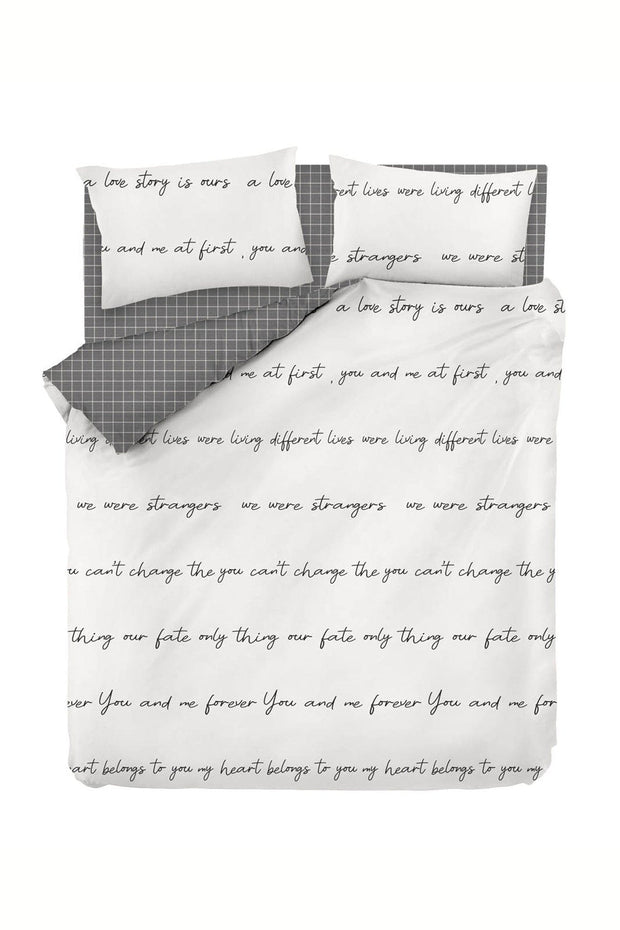 a love story is ours a love
u and me at first , you and
rent lives were living different l
e strangers we were st
a love story is ours a love st
d me at first , you and me at first , you and
living ent lives were living different lives were living different lives were
we were strangers we were strangers we were strangers
u can't change the you can't change the you can't change the y
thing our fate only thing our fate only thing our fate only
ever You and me forever You and me forever You and me for
art belongs to you my heart belongs to you my heart belongs to you my